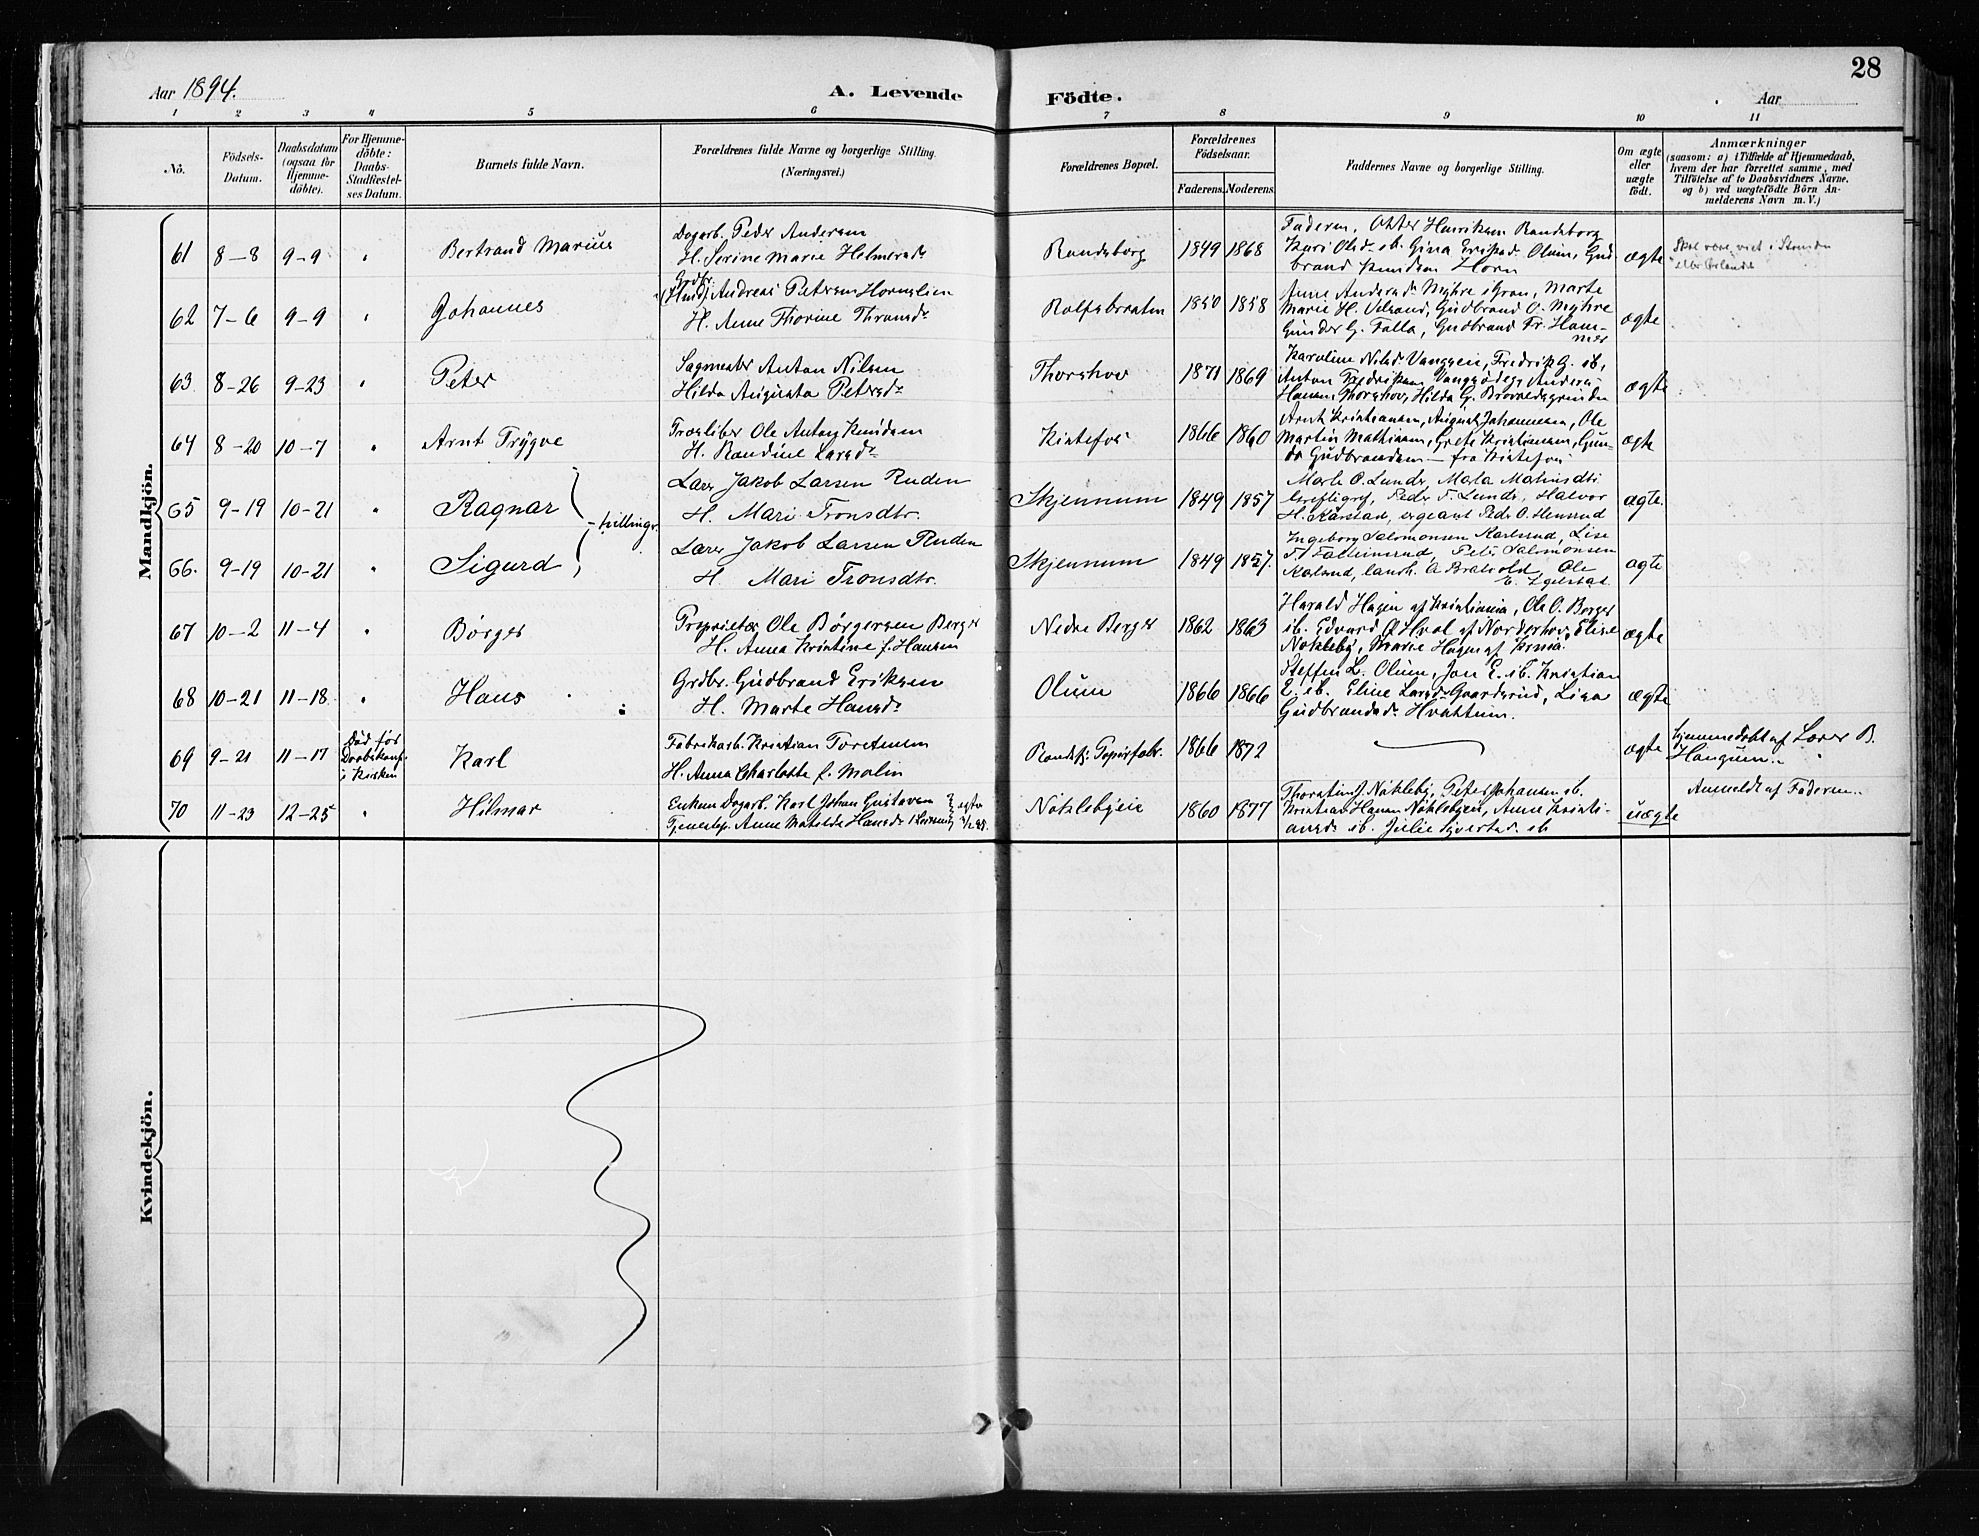 28
Aar 1894.
A. Levende Födte.
Aar
1 2 3 4 5 6 7 8 9 10 11
No.
Födsels-Datum.
Daabsdatum (ogsaa for Hjemme-döbte).
For Hjemme-döbte: Daabs-Stadfæstel-ses Datum.
Barnets fulde Navn.
Forældrenes fulde Navne og borgerlige Stilling. (Næringsvei.)
Forældrenes Bopæl.
Forældrenes Födselsaar.
Faderens. Moderens.
Faddernes Navne og borgerlige Stilling.
Om ægte eller uægte födt.
Anmærkninger
(saasom: a) i Tilfælde af Hjemmedaab,
hvem der har forrettet samme, med
Tilföielse af to Daabsvidners Navne.
og b) ved uægtefödte Börn An-
melderens Navn m. V.)
Mandkjön.
61 8-8 9-9 " Bertrand Marius
Dagarb. Peder Andersen
H. Serine Marie Helmersdr
Randsborg 1849 1868
Faderen, Otter Henriksen Randsborg
Kari Olsdr sb. Gina Eriksdr Olum, Gud
brand Knudsen Horn
ægte
Skal være viet i
62 7-6 9-9 " Johannes
Andreas Petersen Hornslien
H. Anne Thorine Thronsdr
Rolfsbraaten 1850 1858
Anne Andersdr Myhre i Gran, Marte
Marie H. Velsand, Gudbrand O. Myhre
Gunder G. Falla, Gudbrand Fr. Ham-
mer
ægte
63 8-26 9-23 " Peter
Sagmester Anton Nilsen
Hilda Augusta Petersdr
Thorshov 1871 1869
Karoline Nilsdr Vangyeie, Fredrik G. sb,
Anton Fredriksen Anders
Hansen Thorshov, Hilda G.
ægte
64 8-20 10-7 " Arnt Trygve
Træsliber Ole Anton Knudsen
H. Randine Larsdr
Kistefos 1866 1860
Arnt Kristiansen, August Johannesen, Ole
Martin Mathisen, Grete Kristiansen, Gun-
da Gudbrandsen - fra Kistefos
ægte
65 9-19 10-21 " Ragnar
tvillinger
Lærer Jakob Larsen Ruden
H. Mari Tronsdtr.
Skjennum 1849 1857
Marte O. Lunde, Marta Mathisdtr
Greftegrf, Peder T. Lunde, Halvor
H. Karstad, sergeant Pedr O. Hensrud
ægte.
66. 9-19 10-21 " Sigurd
Lærer Jakob Larsen Ruden
H. Mari Tronsdtr.
Skjennum 1849 1857.
Ingeborg Salomonsen Karlsrud, Lise
T. Peter Salomonsen
Karlsrud, landh. A Bratvold, Ole
E. Egelstad.
ægte
67 10-2 11-4 " Børger
Proprietær Ole Børgersen Berger
H. Anna Kristine f. Hansen
Nedre Berger 1862 1863
Harald Hagen af Kristiania, Ole O. Berger
sb. Edvard Hval af Norderhov, Elise
Nøkleby, Marie Hagen af Krnia.
ægte
68 10-21 11-18 " Hans
Grdbr. Gudbrand Eriksen
H. Marte Hansdr
Olum 1866 1866
Steffen L. Olum, Jon E. sb. Kristian
E. sb. Eline Larsdr Gaardsrud, Lisa
Gudbrandsdr Hvattum.
ægte
69 9-21 11-17 Død før Daabsbekræft i Kirken Karl
Fabrikarb. Kristian Torstensen
H. Anna Charlotte f. Malin
Randsf. Papirfabr. 1866 1872
ægte
hjemmedøbt af Lærer B.
Haugum.
70 11-23 12-25 " Hilmar
Enkem. Dagarb. Karl Johan Gustavsen
Tjenestep. Anne Mathilde Hansdr
Nøklebyeie 1860 1877
Thorstein J. Nøkleby, Peter Johansen sb.
Kristian Hansen Nøklebyeie, Anne Kristi-
ansdr sb. Julie Syvertsdr sb
uægte
Anmeldt af Faderen.
Kvindekjön.